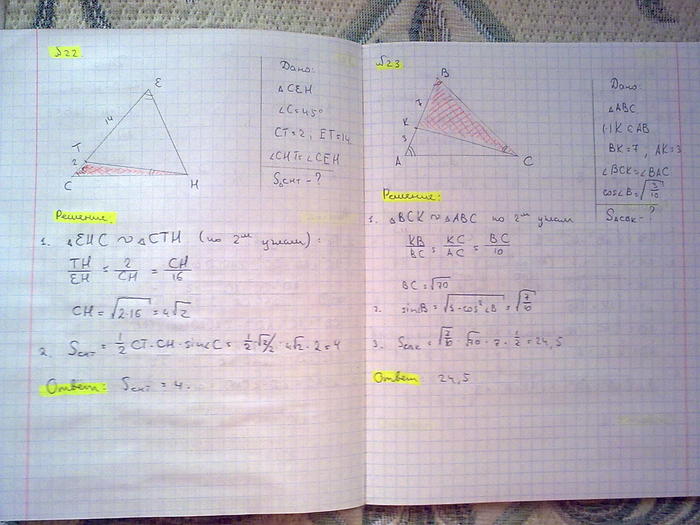 №22
E
14
T
2
C
H
Дано:
△CEH
∠C=45°
CT=2, ET=14
∠CHT=∠CEH
S△CHT - ?
Решение.
1. △EHC ∾ △CTH (по 2ум углам):
TH/EH = 2/CH = CH/16
CH = √2·16 = 4√2
2. SCHT = 1/2 CT·CH·sin∠C = 1/2·√2/2·4√2·2=4
Ответ: SCHT = 4.
№23
B
7
K
3
A
C
Дано:
△ABC
(·)K ⊂ AB
BK=7, AK=3
∠BCK=∠BAC
cos∠B=√3/10
S△CBK - ?
Решение:
1. △BCK ∾ △ABC по 2ум углам
KB/BC = KC/AC = BC/10
BC=√70
2. sinB = √1-cos²∠B = √7/10
3. SCBK = √7/10 · √70 · 7 · 1/2 = 24,5
Ответ: 24,5